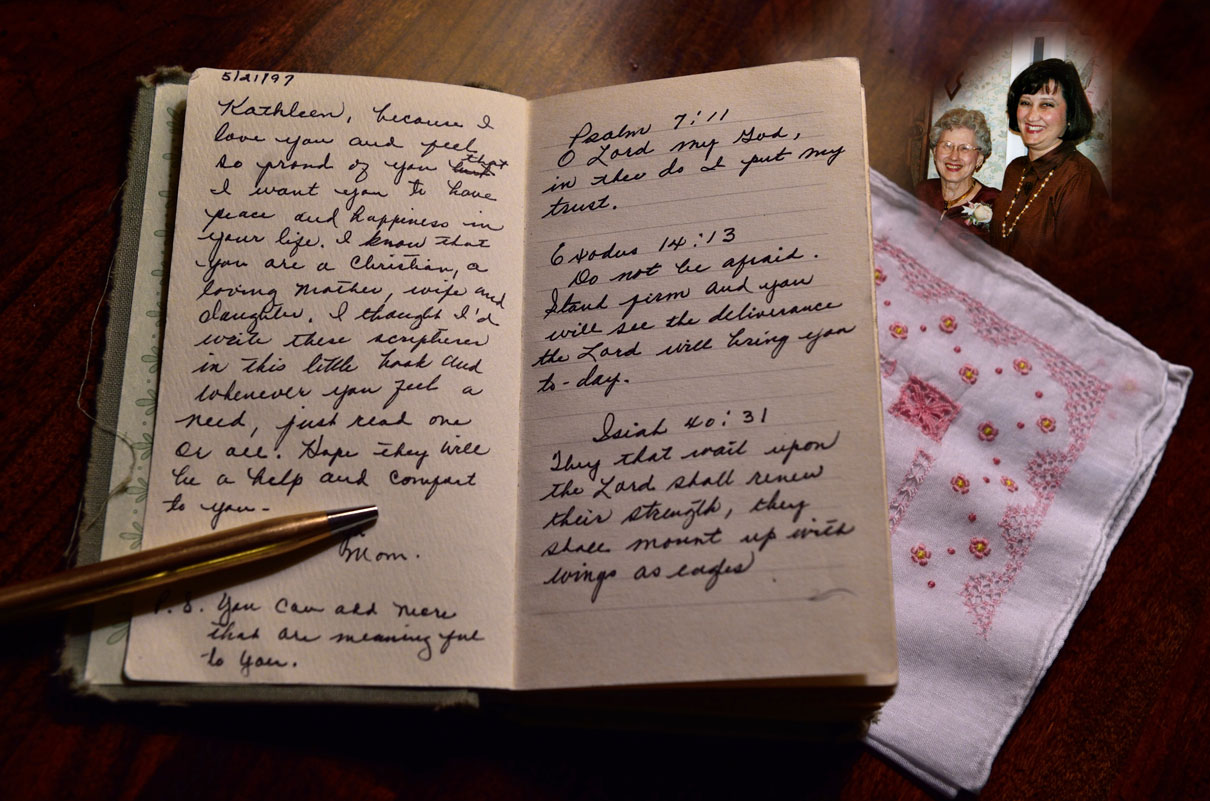 5/21/97
Kathleen, because I
love you and feel
so proud of you that
I want you to have
peace and happiness in
your life. I know that
you are a Christian, a
loving mother, wife and
daughter. I thought I'd
write these scriptures
in this little book and
whenever you feel a
need, just read one
or all. Hope they will
be a help and comfort
to you-
Mom.
P.S. You can add more
that are meaning ful
to you.
Psalm 7:11
O Lord my God,
in thee do I put my
trust.
Exodus 14:13
Do not be afraid.
Stand firm and you
will see the deliverance
the Lord will bring you
to-day.
Isiah 40:31
They that wait upon
the Lord shall renew
their strength, they
shall mount up with
wings as eagles